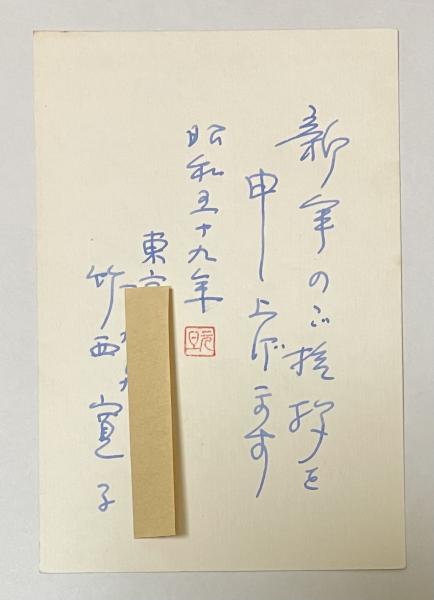 新年のご挨拶を
申し上げます
昭和五十九年
元旦
東京
竹西寛子